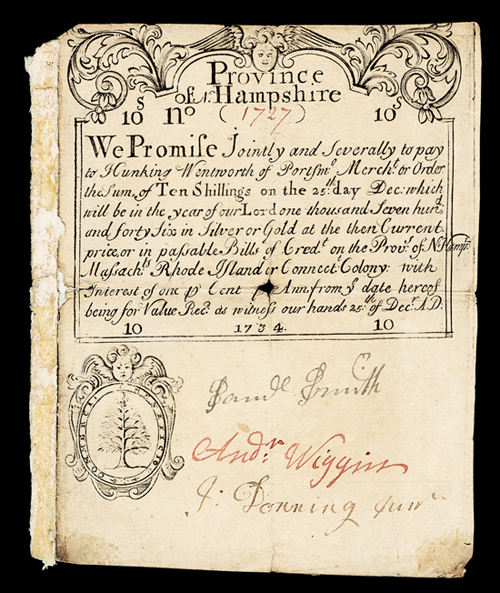 Province
of N. Hampshire
10s No (1727) 10s
We Promise Jointly and Severally to pay
to Hunking Wentworth of Portsmo Mercht or Order
the Sum of Ten Shillings on the 25th day Decr which
will be in the year of our Lord one thousand Seven hund
and forty Six in Silver or Gold at the then Current
price, or in passable Bills of Credt on the Provs of N Hamps
Massachts Rhode Island or Connectt Colony: with
Interest of one pr Cent Ann from ye date hereof
being for Value Recd as witness our hands 25th of Decr A.D.
10 1734. 10
Saml Smith
Andr Wiggin
J: Downing Junr